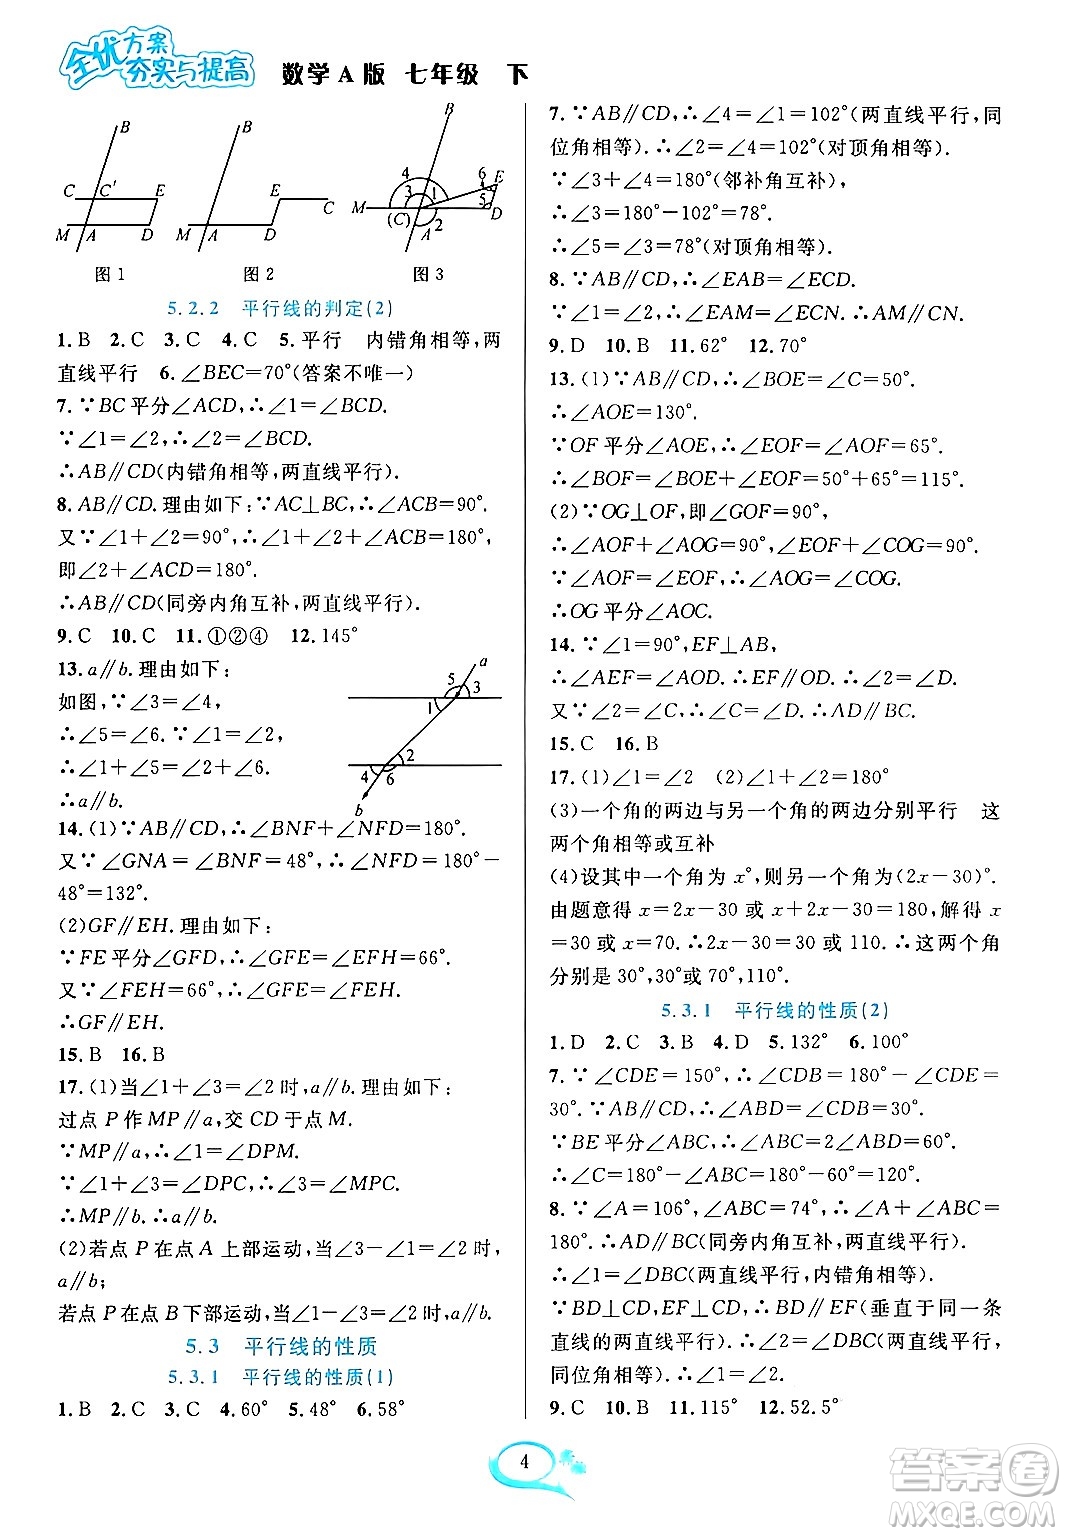 全优方案
夯实与提高
数学A版 七年级 下
B
C
C′
E
M
A
D
图1
B
E
C
M
A
D
图2
B
4
6
E
3
1
5
M
(C)
2
D
A
图3
5.2.2 平行线的判定(2)
1.B 2.C 3.C 4.C 5.平行 内错角相等,两
直线平行 6.∠BEC=70°(答案不唯一)
7.∵BC平分∠ACD,∴∠1=∠BCD.
∵∠1=∠2,∴∠2=∠BCD.
∴AB∥CD(内错角相等,两直线平行).
8.AB∥CD.理由如下:∵AC⊥BC,∴∠ACB=90°.
又∵∠1+∠2=90°,∴∠1+∠2+∠ACB=180°,
即∠2+∠ACD=180°.
∴AB∥CD(同旁内角互补,两直线平行).
9.C 10.C 11.①②④ 12.145°
13.a∥b.理由如下:
如图,∵∠3=∠4,
∴∠5=∠6.∵∠1=∠2,
∴∠1+∠5=∠2+∠6.
∴a∥b.
a
5
3
1
2
4
6
b
14.(1)∵AB∥CD,∴∠BNF+∠NFD=180°.
又∵∠GNA=∠BNF=48°,∴∠NFD=180°-
48°=132°.
(2)GF∥EH.理由如下:
∵FE平分∠GFD,∴∠GFE=66°.
又∵∠FEH=66°,∴∠GFE=∠FEH.
∴GF∥EH.
15.B 16.B
17.(1)当∠1+∠3=∠2时,a∥b.理由如下:
过点P作MP∥a,交CD于点M.
∵MP∥a,∴∠1=∠DPM.
∵∠1+∠3=∠DPC,∴∠3=∠MPC.
∴MP∥b.∴a∥b.
(2)若点P在点A上部运动,当∠3-∠1=∠2时,
a∥b;
若点P在点B下部运动,当∠1-∠3=∠2时,a∥b.
5.3 平行线的性质
5.3.1 平行线的性质(1)
1.B 2.C 3.C 4.60° 5.48° 6.58°
7.∵AB∥CD,∴∠4=∠1=102°(两直线平行,同
位角相等).∴∠2=∠4=102°(对顶角相等).
∵∠3+∠4=180°(邻补角互补),
∴∠3=180°-102°=78°.
∴∠5=∠3=78°(对顶角相等).
8.∵AB∥CD,∴∠EAB=∠ECD.
∵∠1=∠2,∴∠EAM=∠ECN.∴AM∥CN.
9.D 10.B 11.62° 12.70°
13.(1)∵AB∥CD,∴∠BOE=∠C=50°.
∴∠AOE=130°.
∵OF平分∠AOE,∴∠EOF=∠AOF=65°.
∴∠BOF=∠BOE+∠EOF=50°+65°=115°.
(2)∵OG⊥OF,即∠GOF=90°,
∴∠AOF+∠AOG=90°,∠EOF+∠COG=90°.
∵∠AOF=∠EOF,∴∠AOG=∠COG.
∴OG平分∠AOC.
14.∵∠1=90°,EF⊥AB,
∴∠AEF=∠AOD.∴EF∥OD.∴∠2=∠D.
又∵∠2=∠C,∴∠C=∠D.∴AD∥BC.
15.C 16.B
17.(1)∠1=∠2 (2)∠1+∠2=180°
(3)一个角的两边与另一个角的两边分别平行 这
两个角相等或互补
(4)设其中一个角为x°,则另一个角为(2x-30)°.
由题意得x=2x-30或x+2x-30=180,解得x
=30或x=70.∴2x-30=30或110.∴这两个角
分别是30°,30°或70°,110°.
5.3.1 平行线的性质(2)
1.D 2.C 3.B 4.D 5.132° 6.100°
7.∵∠CDE=150°,∴∠CDB=180°-∠CDE=
30°.∵AB∥CD,∴∠ABD=∠CDB=30°.
∵BE平分∠ABC,∴∠ABC=2∠ABD=60°.
∴∠C=180°-∠ABC=180°-60°=120°.
8.∵∠A=106°,∠ABC=74°,∴∠A+∠ABC=
180°.∴AD∥BC(同旁内角互补,两直线平行).
∴∠1=∠DBC(两直线平行,内错角相等).
∵BD⊥CD,EF⊥CD,∴BD∥EF(垂直于同一条
直线的两直线平行).∴∠2=∠DBC(两直线平行,
同位角相等).∴∠1=∠2.
9.C 10.B 11.115° 12.52.5°
4
答案卷
MXQE.COM